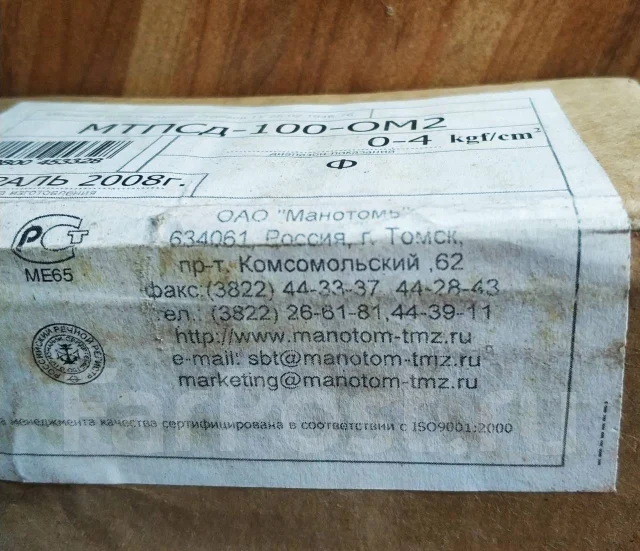 МТПСд-100-ОМ2
0-4 kgf/cm²
диапазон показаний
Ф
0800 453328
РАЛЬ 2008г.
изготовления
ОАО "Манотомь"
634061, Россия, г. Томск,
пр-т. Комсомольский ,62
факс:(3822) 44-33-37 44-28-43
ел.: (3822) 26-61-81,44-39-11
http://www.manotom-tmz.ru
e-mail: sbt@manotom-tmz.ru
marketing@manotom-tmz.ru
РСТ
МЕ65
РОССИЙСКИЙ РЕЧНОЙ РЕГИСТР
а менеджмента качества сертифицирована в соответствии с ISO9001:2000
FarPost.ru